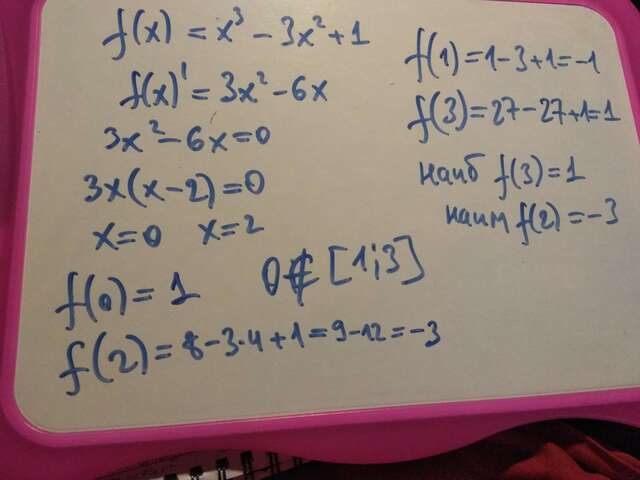 f(x) = x³ - 3x² + 1
f(x)' = 3x² - 6x
3x² - 6x = 0
3x(x - 2) = 0
x = 0 x = 2
f(0) = 1 0 ∉ [1;3]
f(2) = 8 - 3·4 + 1 = 9 - 12 = -3
f(1) = 1 - 3 + 1 = -1
f(3) = 27 - 27 + 1 = 1
наиб f(3) = 1
наим f(2) = -3